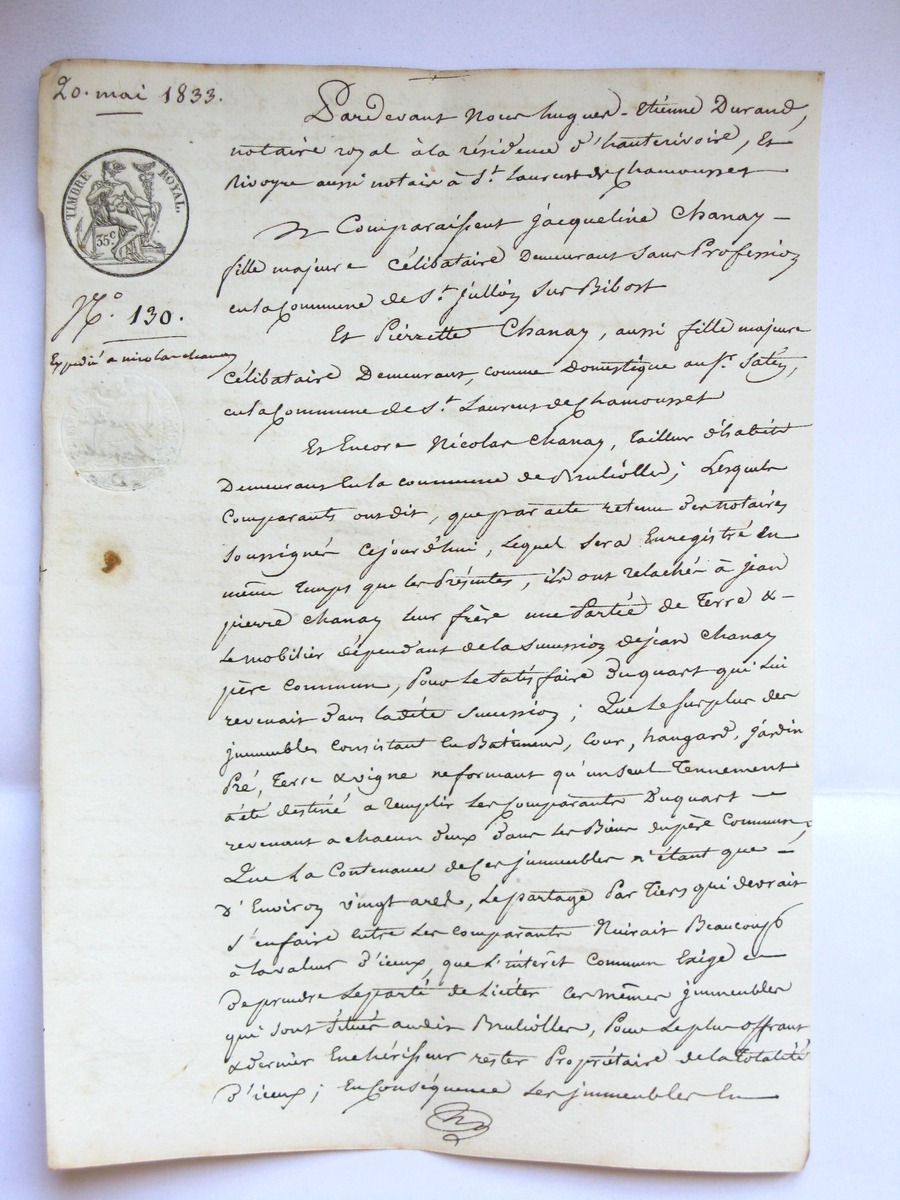 20. mai 1833.
TIMBRE ROYAL.
35c
N.º 130.
Expédié a nicolas chanay
Pardevant Nous hugues-Etienne Durand,
notaire royal à la résidence d'hauterivoire, Et
Rivoyre aussi notaire à St. Laurent de Chamousset
Comparaissent jacqueline Chanay -
fille majeure célibataire Demeurant sans Profession
en la Commune de St. Jullien sur Bibost
Et Pierrette Chanay, aussi fille majeure
célibataire Demeurant, comme Domestique au Sr.
en la Commune de St. Laurent de Chamousset
Et Encore Nicolas Chanay, tailleur d'habits
Demeurant En la commune de Brulliolles; Lesquels
Comparants ont dit, que par acte retenu des notaires
soussignés cejourd'hui, lequel sera Enregistré En
même temps que les Présentes, ils ont relaché à jean
pierre chanay leur frère une Partie de terre &
le mobilier dépendant de la succession de jean Chanay
père commun, Pour le satisfaire du quart qui lui
revenait dans ladite succession; Que le surplus des
jmmeubles consistant En Batiment, Cour, hangard, jardin
Pré, Terre & vigne ne formant qu'un seul Tennement
a été destiné a remplir les Comparants Du quart -
revenant a chacun d'eux dans les Biens du père Commun;
Que la Contenance de ces jmmeubles n'étant que -
d'Environ vingt ares, le partage Par Tiers qui devrait
s'en faire Entre les comparants Nuirait Beaucoup
à la valeur d'iceux, que l'intérêt commun Exige
De prendre le parti de liciter ces mêmes jmmeubles
qui sont situés audit Brulliolles, Pour le plus offrant
& dernier Enchérisseur rester Propriétaire de la totalité
d'iceux; En Conséquence les jmmeubles En